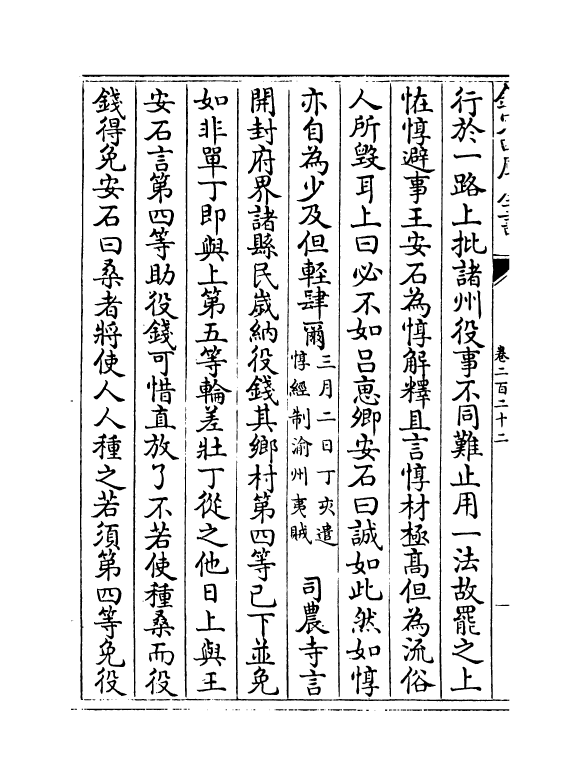 卷二百二十二
行於一路上批諸州役事不同難止用一法故罷之上
恠惇避事王安石為惇解釋且言惇材極髙但為流俗
人所毀耳上曰必不如吕惠卿安石曰誠如此然如惇
亦自為少及但輕肆爾三月二日丁亥遣惇經制渝州夷賊司農寺言
開封府界諸縣民嵗納役錢其鄉村第四等已下並免
如非單丁即與上第五等輪差壯丁從之他日上與王
安石言第四等助役錢可惜直放了不若使種桑而役
錢得免安石曰桑者將使人人種之若須第四等免役